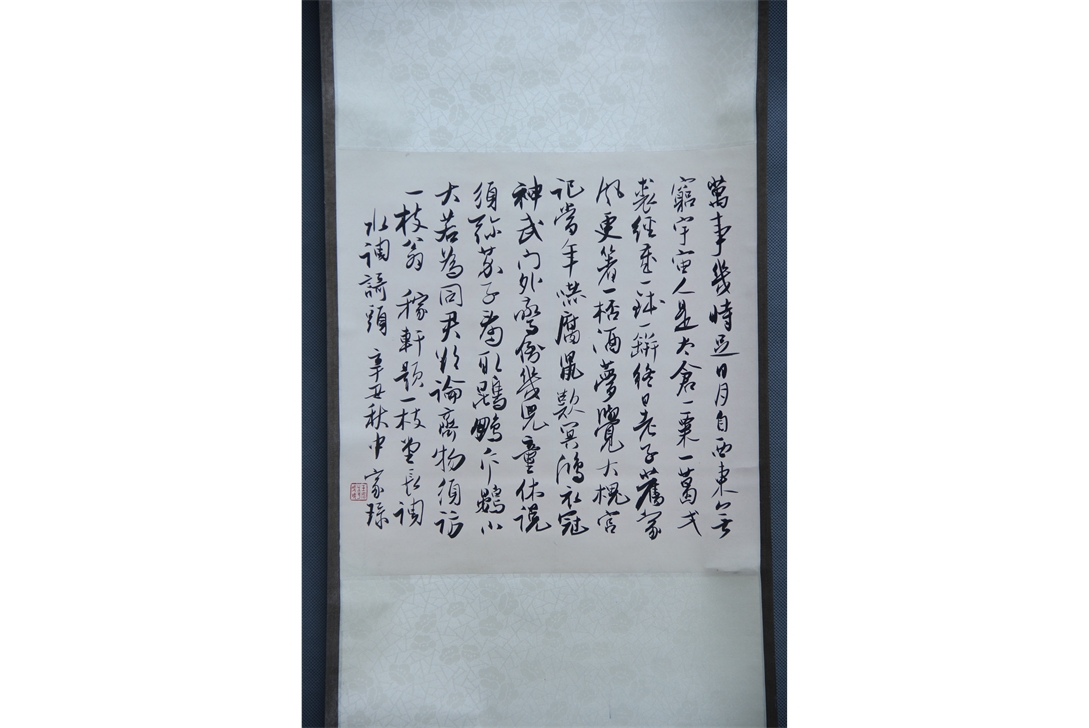 萬事幾時足日月自西東無
窮宇宙人是太倉一粟一葛弌
裘經歲一鉢一缾終日老子舊家
風更箸一桮酒夢覺大槐宮
記當年嚇腐鼠歎冥鴻衣冠
神武門外驚倒幾兒童休說
須弥芥子看取鵾鵬斥鷃小
大若為同君欲論齊物須訪
一枝翁 稼軒題一枝堂長調
水調謌頭 辛丑秋中 家